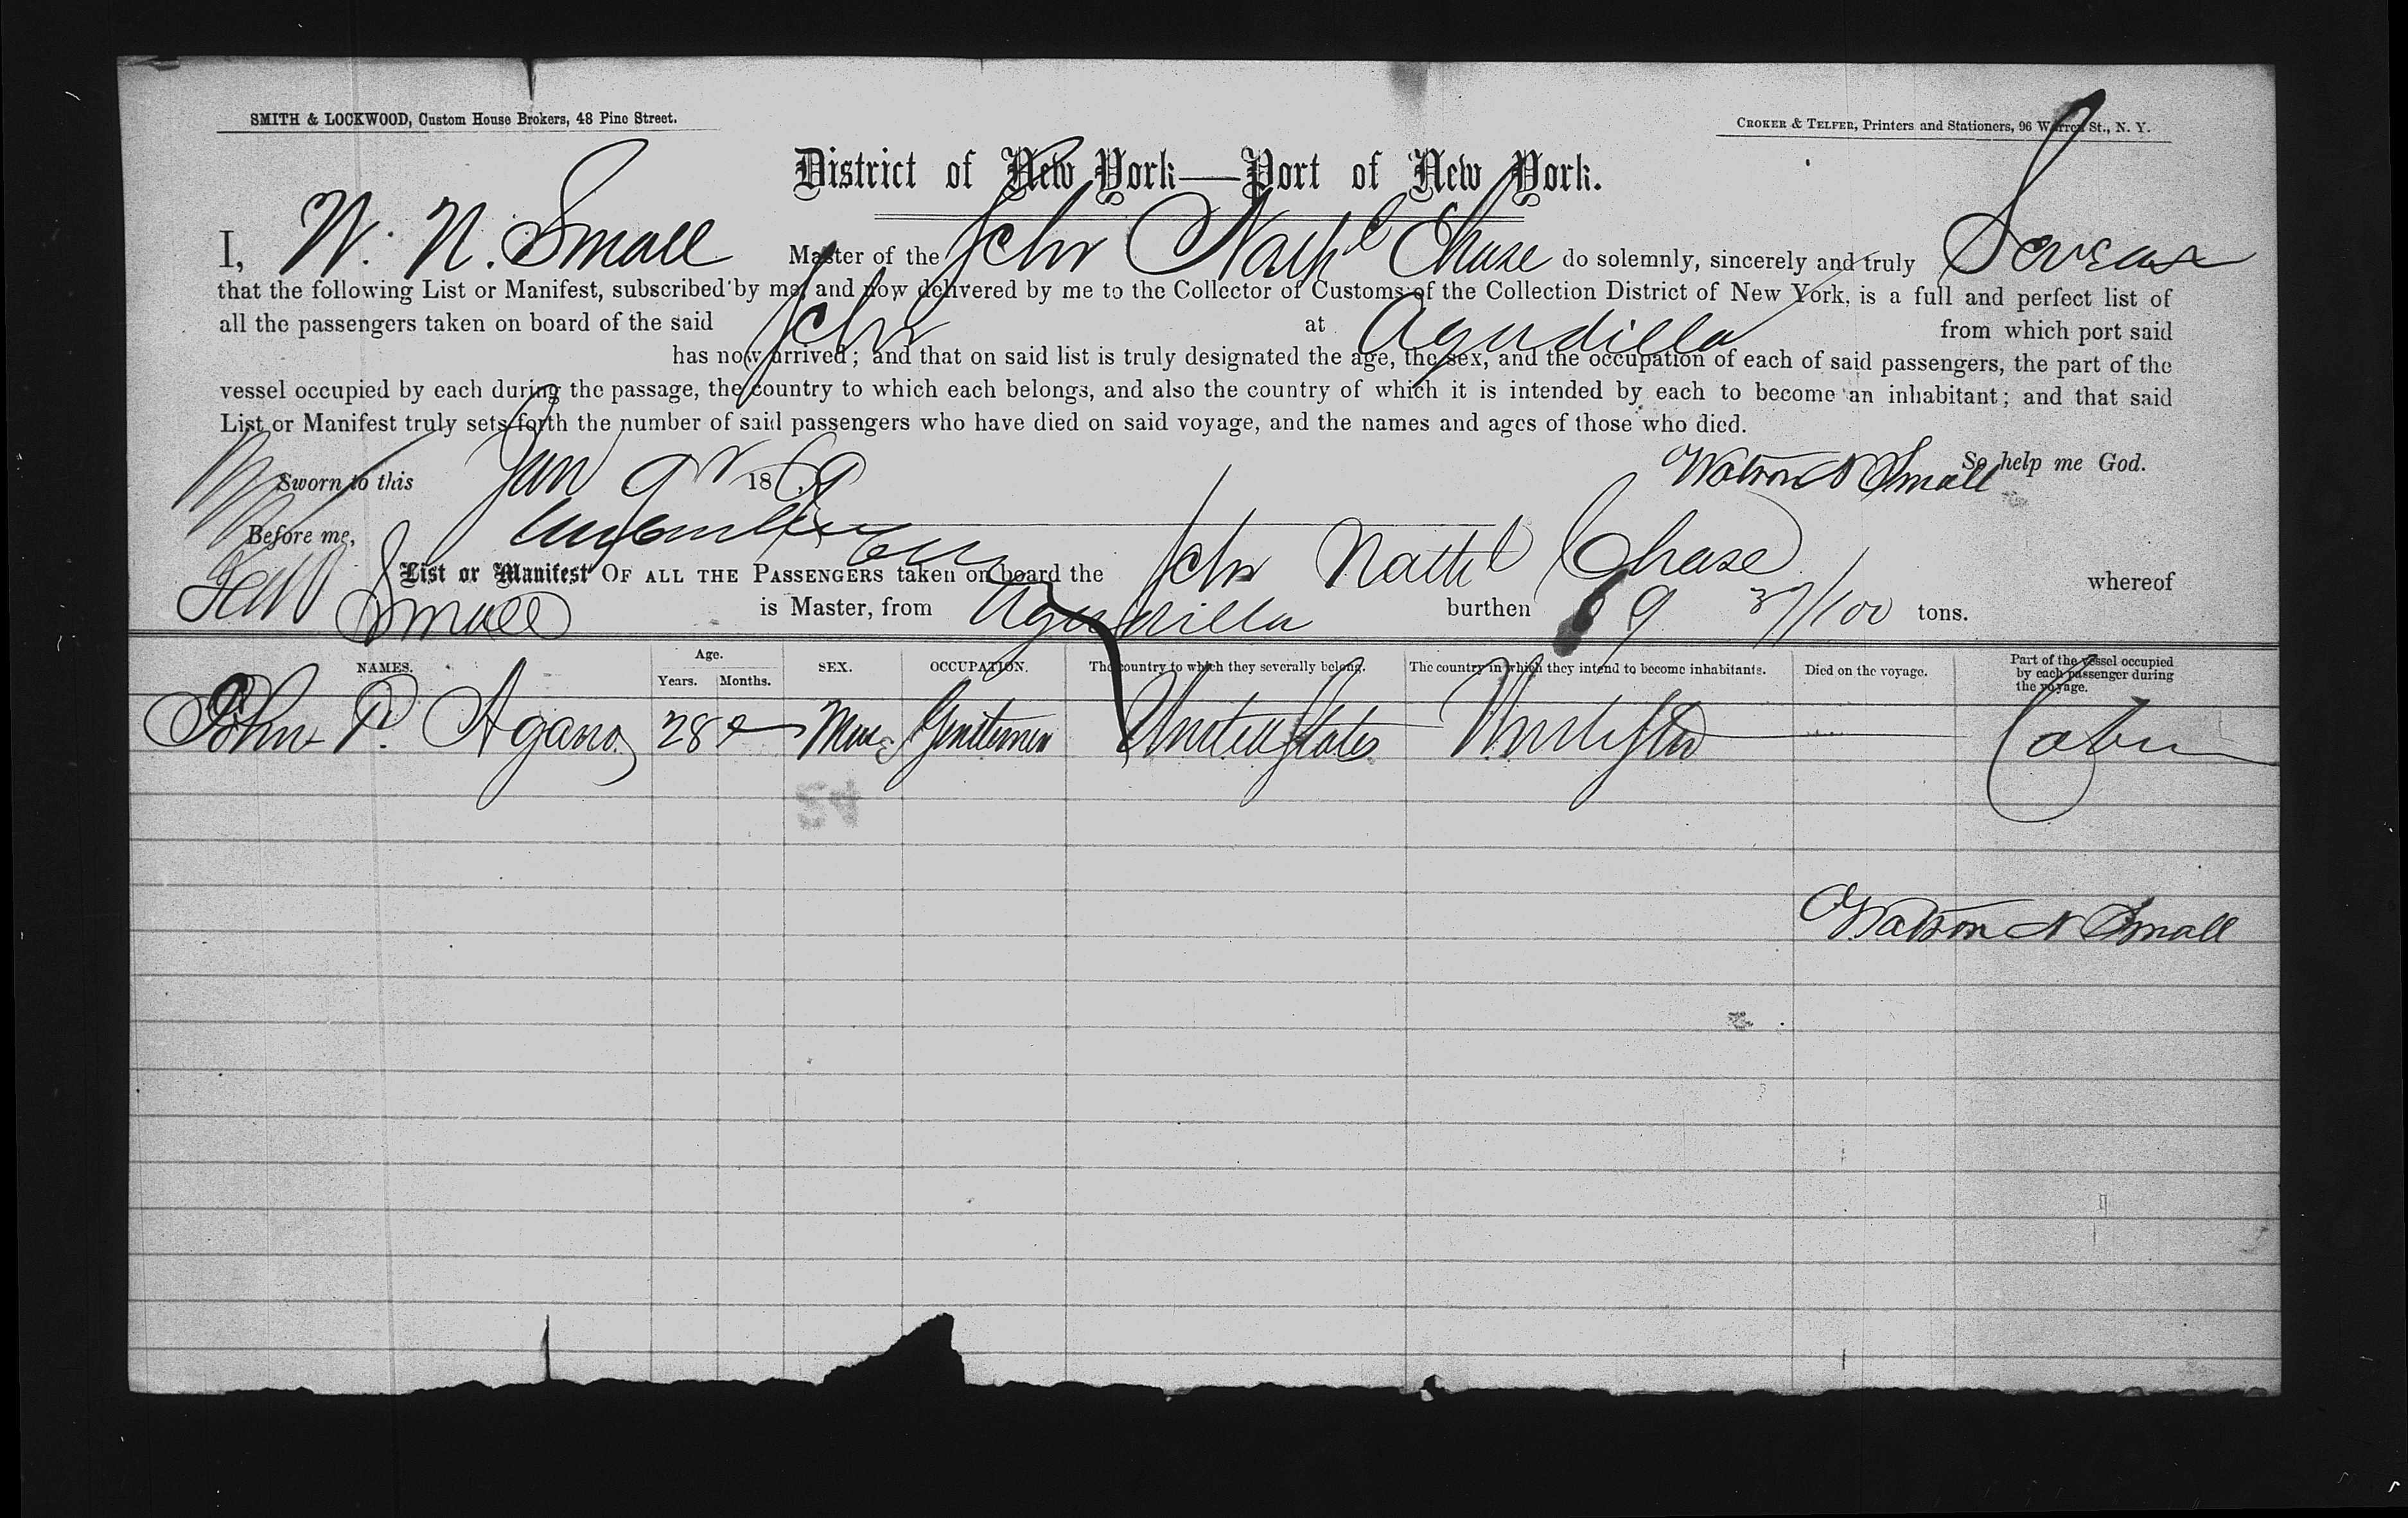 SMITH & LOCKWOOD, Custom House Brokers, 48 Pine Street.
CROKER & TELFER, Printers and Stationers, 96 Warren St., N. Y.
District of New York—Port of New York.
I, W. N. Small Master of the Schr Nathl Chase do solemnly, sincerely and truly Swear
that the following List or Manifest, subscribed by me, and now delivered by me to the Collector of Customs of the Collection District of New York, is a full and perfect list of
all the passengers taken on board of the said Schr at Aguadilla from which port said
has now arrived; and that on said list is truly designated the age, the sex, and the occupation of each of said passengers, the part of the
vessel occupied by each during the passage, the country to which each belongs, and also the country of which it is intended by each to become an inhabitant; and that said
List or Manifest truly sets forth the number of said passengers who have died on said voyage, and the names and ages of those who died.
So help me God.
Sworn to this Jan 9 1869 Watson N Small
Before me,
List or Manifest OF ALL THE PASSENGERS taken on board the Schr Nathl Chase whereof
Small is Master, from Aguadilla burthen 69 37/100 tons.
NAMES. Age. Years. Months. SEX. OCCUPATION. The country to which they severally belong. The country in which they intend to become inhabitants. Died on the voyage. Part of the vessel occupied by each passenger during the voyage.
John P. Agano 28 Male Gentleman United States United Sts Cabin
Watson N Small